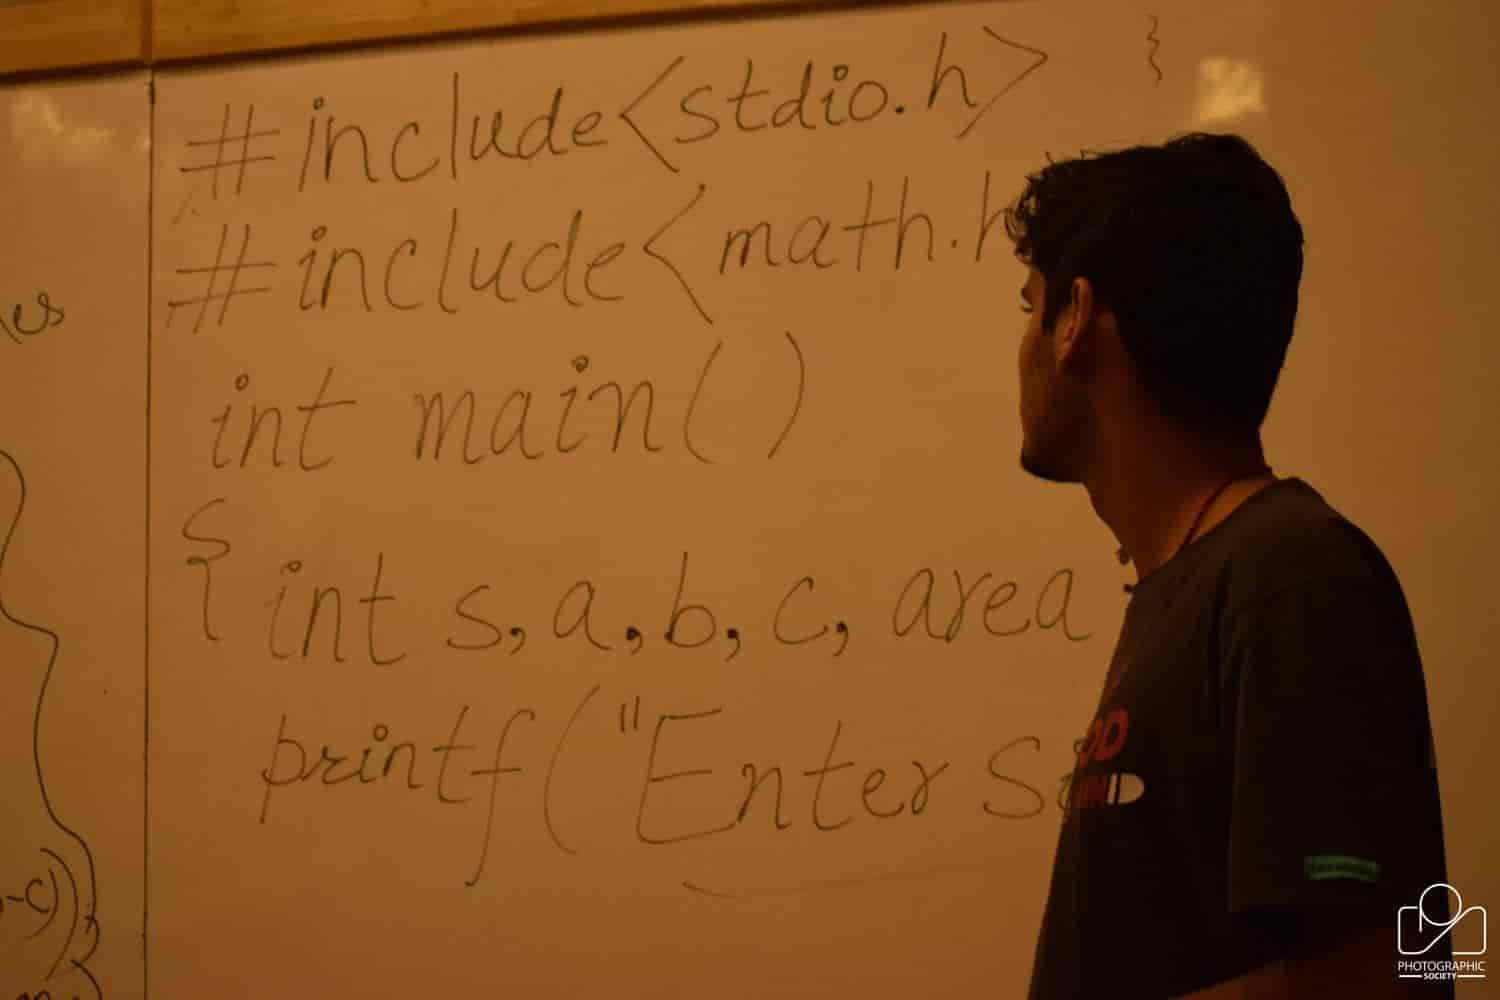 #include<stdio.h> }
#include<math.h
int main()
{
int s, a, b, c, area
printf("Enter
-c));
PHOTOGRAPHIC
SOCIETY